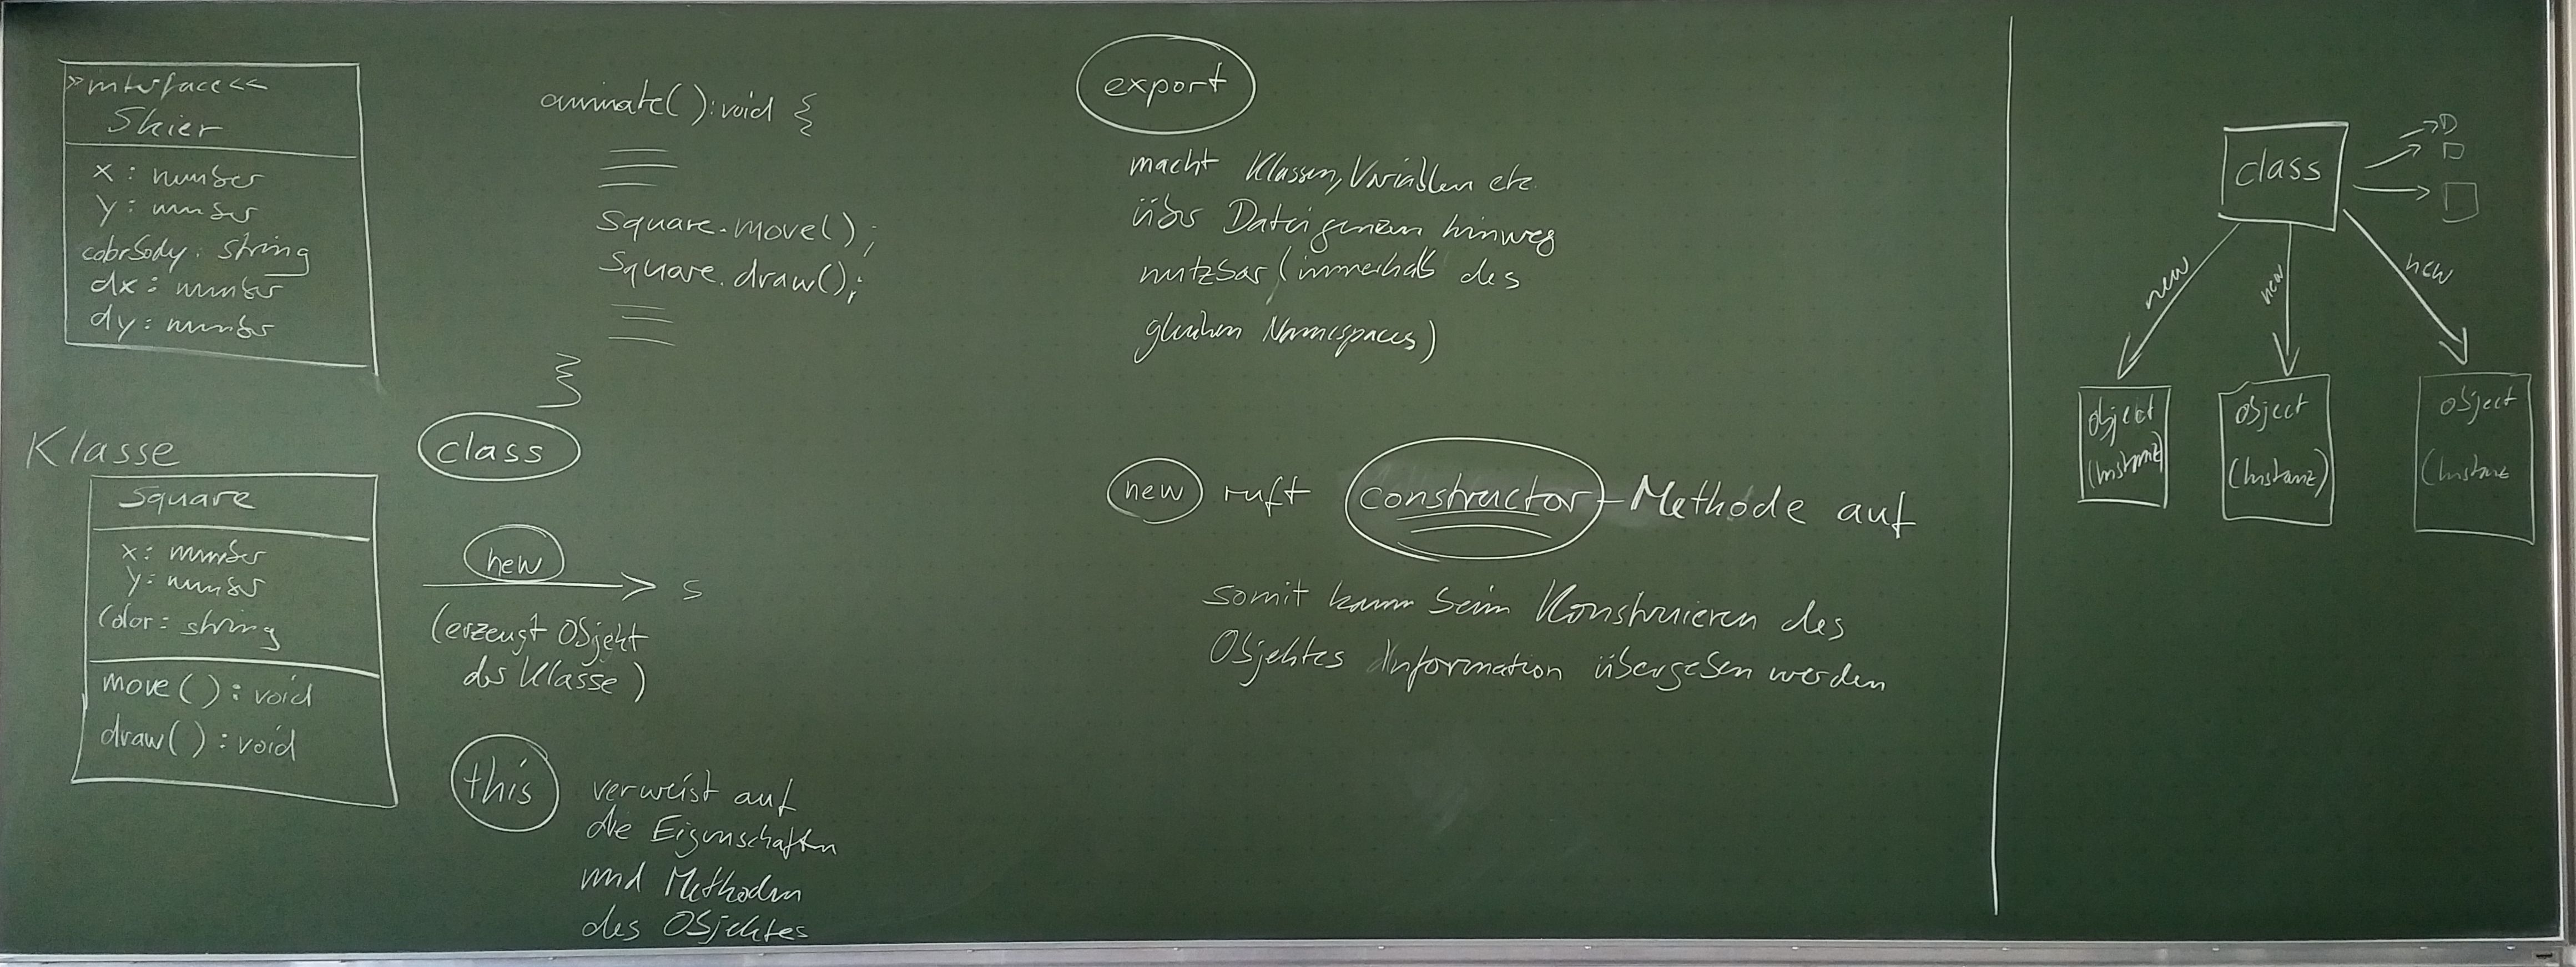 >>interface<<
Skier
x : number
y : number
colorBody : string
dx : number
dy : number
animate() : void {
square.move();
square.draw();
}
Klasse
Square
x : number
y : number
Color : string
move() : void
draw() : void
class
new
s
(erzeugt Objekt
der Klasse)
this
verweist auf
die Eigenschaften
und Methoden
des Objektes
export
macht Klassen, Variablen etc.
über Dateigrenzen hinweg
nutzbar (innerhalb des
gleichen Namespaces)
new ruft constructor-Methode auf
somit kann beim Konstruieren des
Objektes Information übergeben werden
class
new
new
new
object
(Instanz)
object
(Instanz)
object
(Instanz